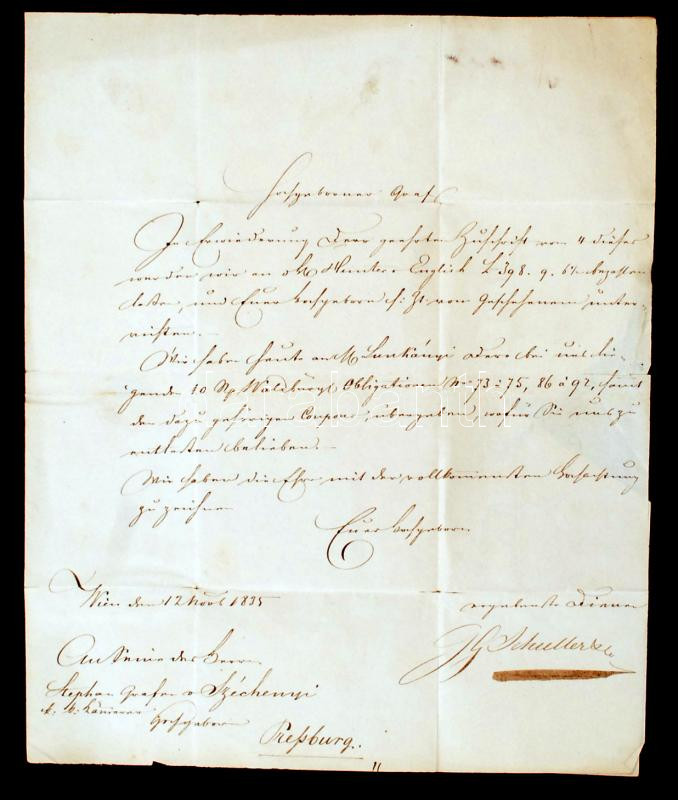 Hochgeborner Graf
In Erwiederung Dero geehrten Zuschrift vom 4 dieses
werden wir an Hunter English £ 398. 9. 6 bezahlen
lassen, und Euer Hochgeboren s: Zt von Geschehenem unter-
richten.-
Wir haben heute an H Lunkányi Dero bei uns lie-
genden 10 Waldbürgl Obligationen No 73 à 75, 86 à 92, samt
den dazu gehörigen Coupons, übergeben, wofür Sie uns zu
entlasten belieben.-
Wir haben die Ehre mit der vollkommensten Hochachtung
zu zeichnen
Euer Hochgeboren
Wien den 12 Novb 1835
ergebenste Diener
JG Schuller & Co
An Seine des Herrn
Stephan Grafen v Széchenyi
k: k: Kämmerer Hochgeboren
Preßburg.